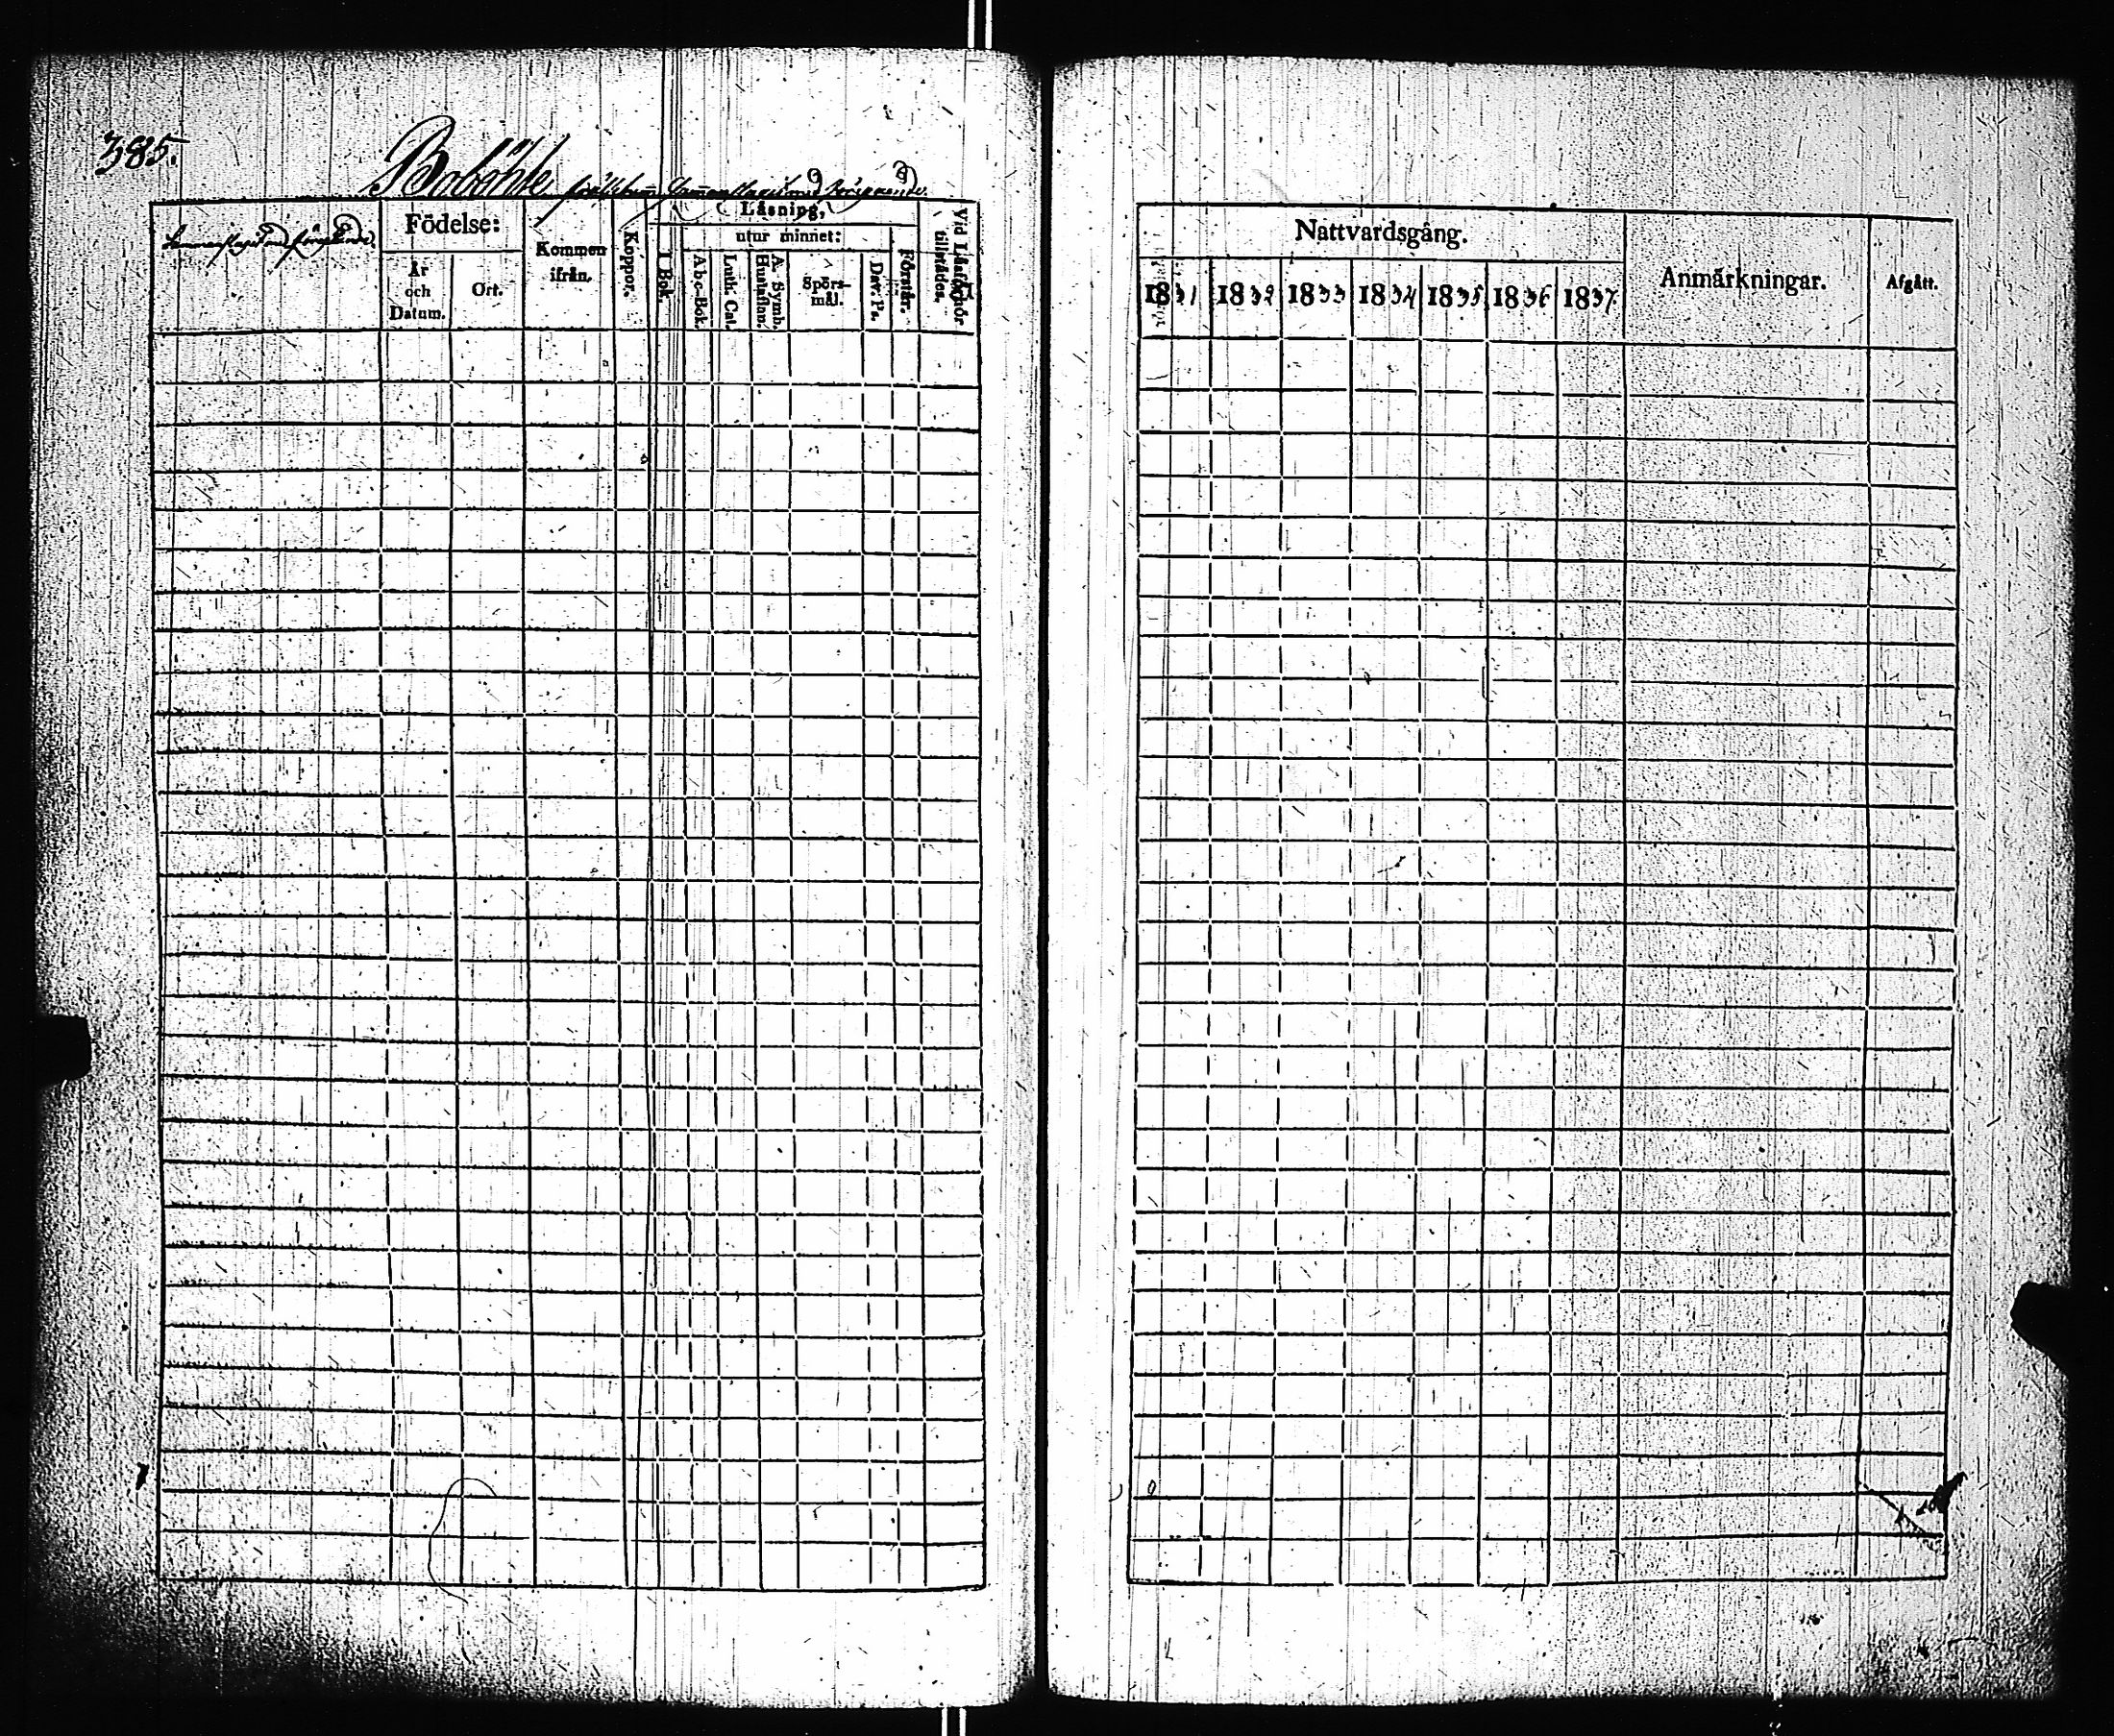 385.
Boböhle
Födelse:
År och Datum.
Ort.
Kommen ifrån.
Koppor.
Läsning,
I Bok.
utur minnet:
A-b-c-Bok.
Luth. Cat.
A. Symb. Hustaflan.
Spörs-mål.
Dav. Ps.
Förstår.
Vid Läsförhör tillstädes.
Nattvardsgång.
1831
1832
1833
1834
1835
1836
1837
Anmärkningar.
Afgått.